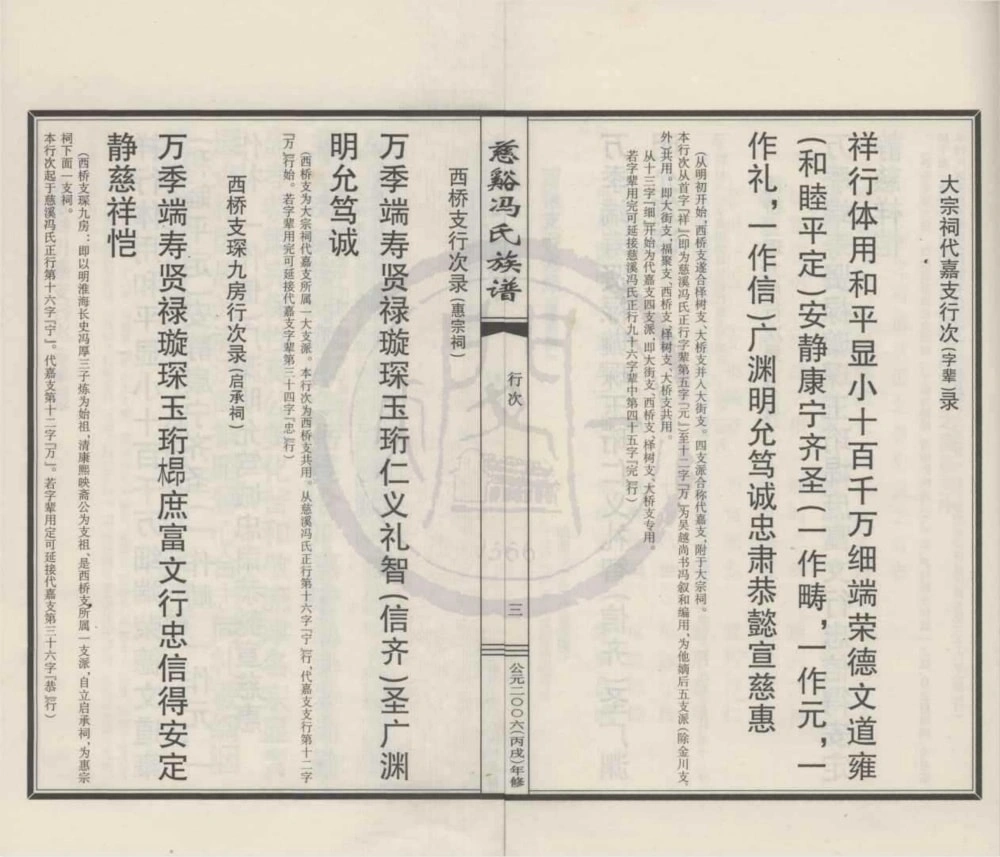 大宗祠代嘉支行次(字辈)录
祥行体用和平显小十百千万细端荣德文道雍
(和睦平定)安静康宁齐圣(一作畴,一作元,一
作礼,一作信)广渊明允笃诚忠肃恭懿宣慈惠
(从明初开始,西桥支遂合样树支、大桥支并入大街支。四支派合称代嘉支,附于大宗祠。
本行次从首字『祥』(即为慈溪冯氏正行字辈第五字『元』)至十二字『万』为吴越尚书冯叙和编用,为他嫡后五支派(除金川支,
外)共用。即大街支、福聚支、西桥支、样树支、大桥支共用。
从十三字『细』开始为代嘉支四支派:即大街支、西桥支、样树支、大桥支专用。
若字辈用完可延接慈溪冯氏正行九十六字辈中第四十五字『完』行)
慈谿冯氏族谱
行次
三
公元二〇〇六(丙戌)年修
西桥支行次录(惠宗祠)
万季端寿贤禄璇琛玉珩仁义礼智(信齐)圣广渊
明允笃诚
(西桥支为大宗祠代嘉支所属一大支派。本行次为西桥支共用。从慈溪冯氏正行第十六字『宁』行,代嘉支支行第十二字
『万』行始。若字辈用完可延接代嘉支字辈第三十四字『忠』行)
西桥支琛九房行次录(启承祠)
万季端寿贤禄璇琛玉珩槢庶富文行忠信得安定
静慈祥恺
(西桥支琛九房:即以明淮海长史冯厚三子栋为始祖,清康熙映斋公为支祖、是西桥支所属一支派,自立启承祠,为惠宗
祠下面一支祠。
本行次起于慈溪冯氏正行第十六字『宁』。代嘉支第十二字『万』。若字辈用定可延接代嘉支第三十六字『恭』行)